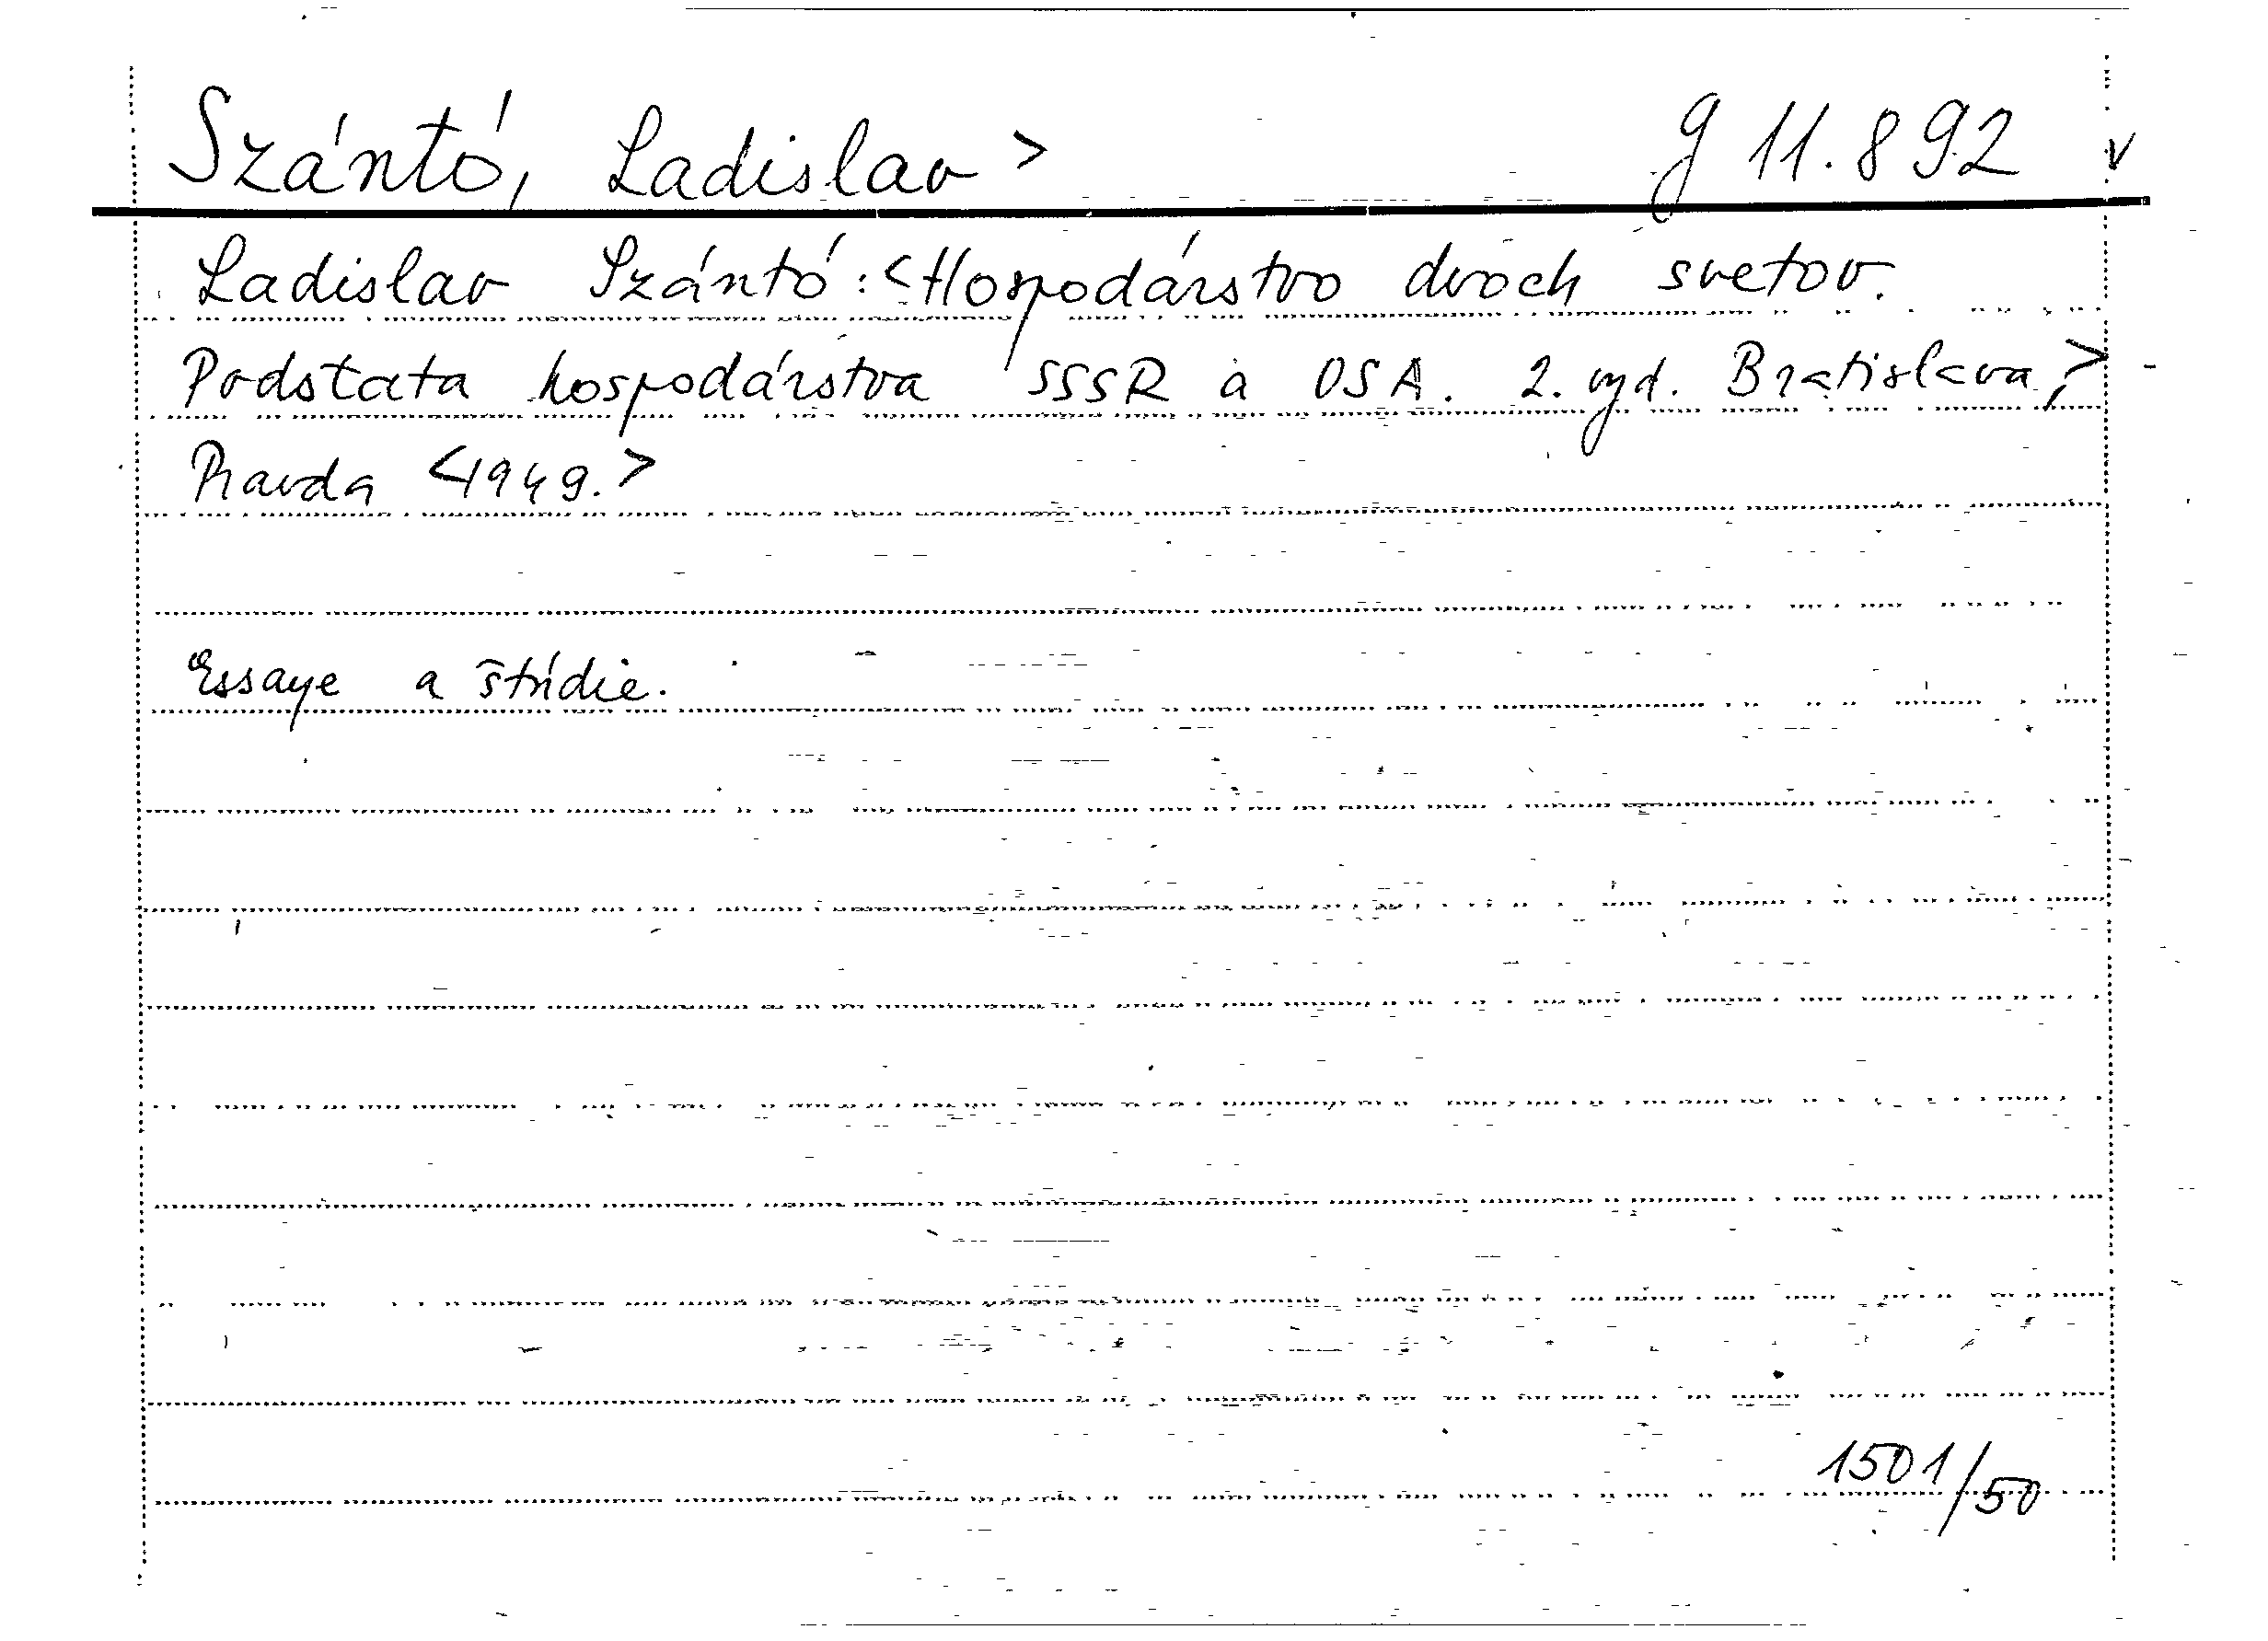 Szántó, Ladislav > g 11.892 v
Ladislav Szántó: <Hospodárstvo dvoch svetov.
Podstata hospodárstva SSSR a USA. 2. vyd. Bratislava,>
Pravda <1949.>
Essaye a štúdie.
1501/50